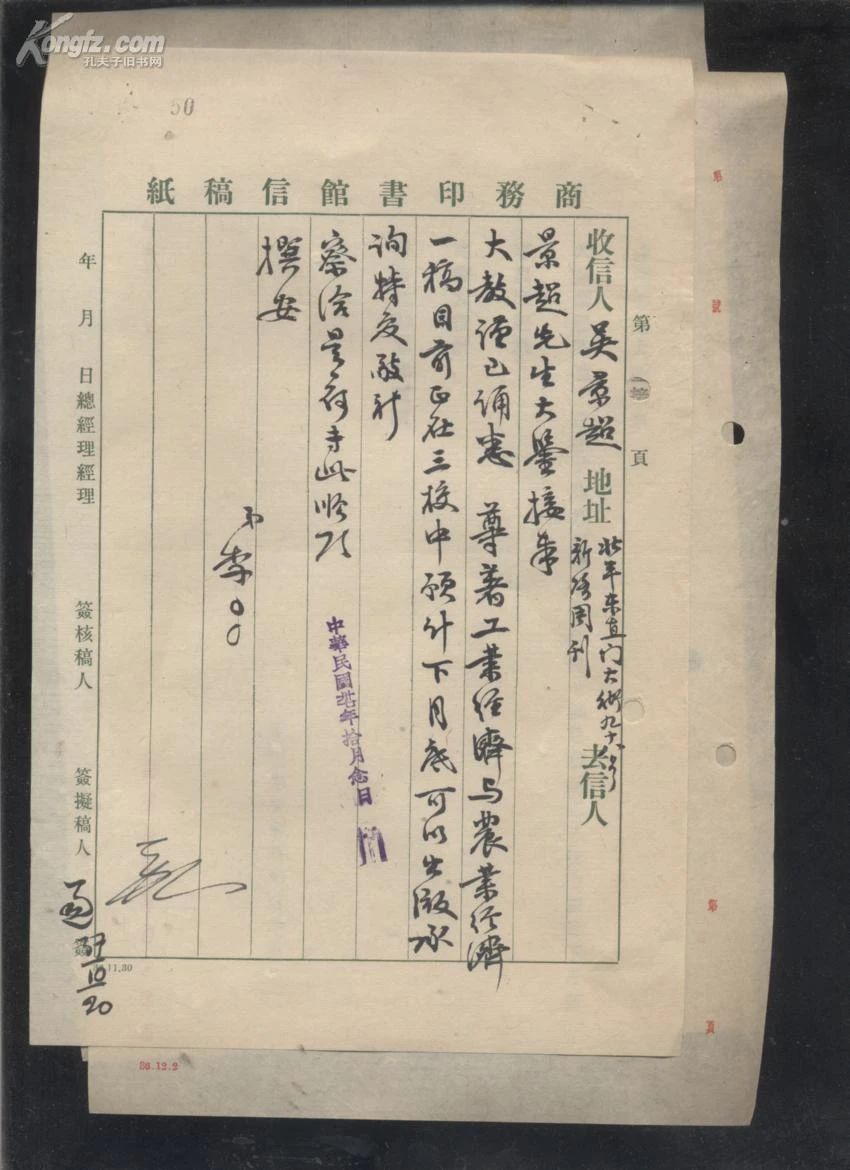 Kongfz.com
孔夫子旧书网
50
紙稿信館書印務商
第 頁
收信人 吴景超 地址 北平东直门大街九十八号 去信人
新路周刊
景超先生大鑒接奉
大教谨已诵悉 尊著工業经濟与農業经濟
一稿目前正在三校中预计下月底可以出版承
询特复敬祈
察洽是荷专此顺颂
撰安
弟李〇〇
中華民國卅七年拾月念日
年 月 日總經理經理 簽核稿人 簽擬稿人 簽
37/10/20
11.30
36.12.2
第
號
第
頁